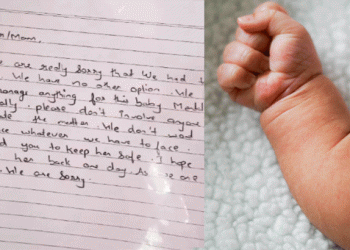 /Mam,
are really sorry that we had t
We have no other option. We
anage anything for this baby. Ment
ally. please don't involve anyone
the matter. We don't want
se whatever we have to face.
d you to keep her safe. I hope
her back one day. As
We are sorry